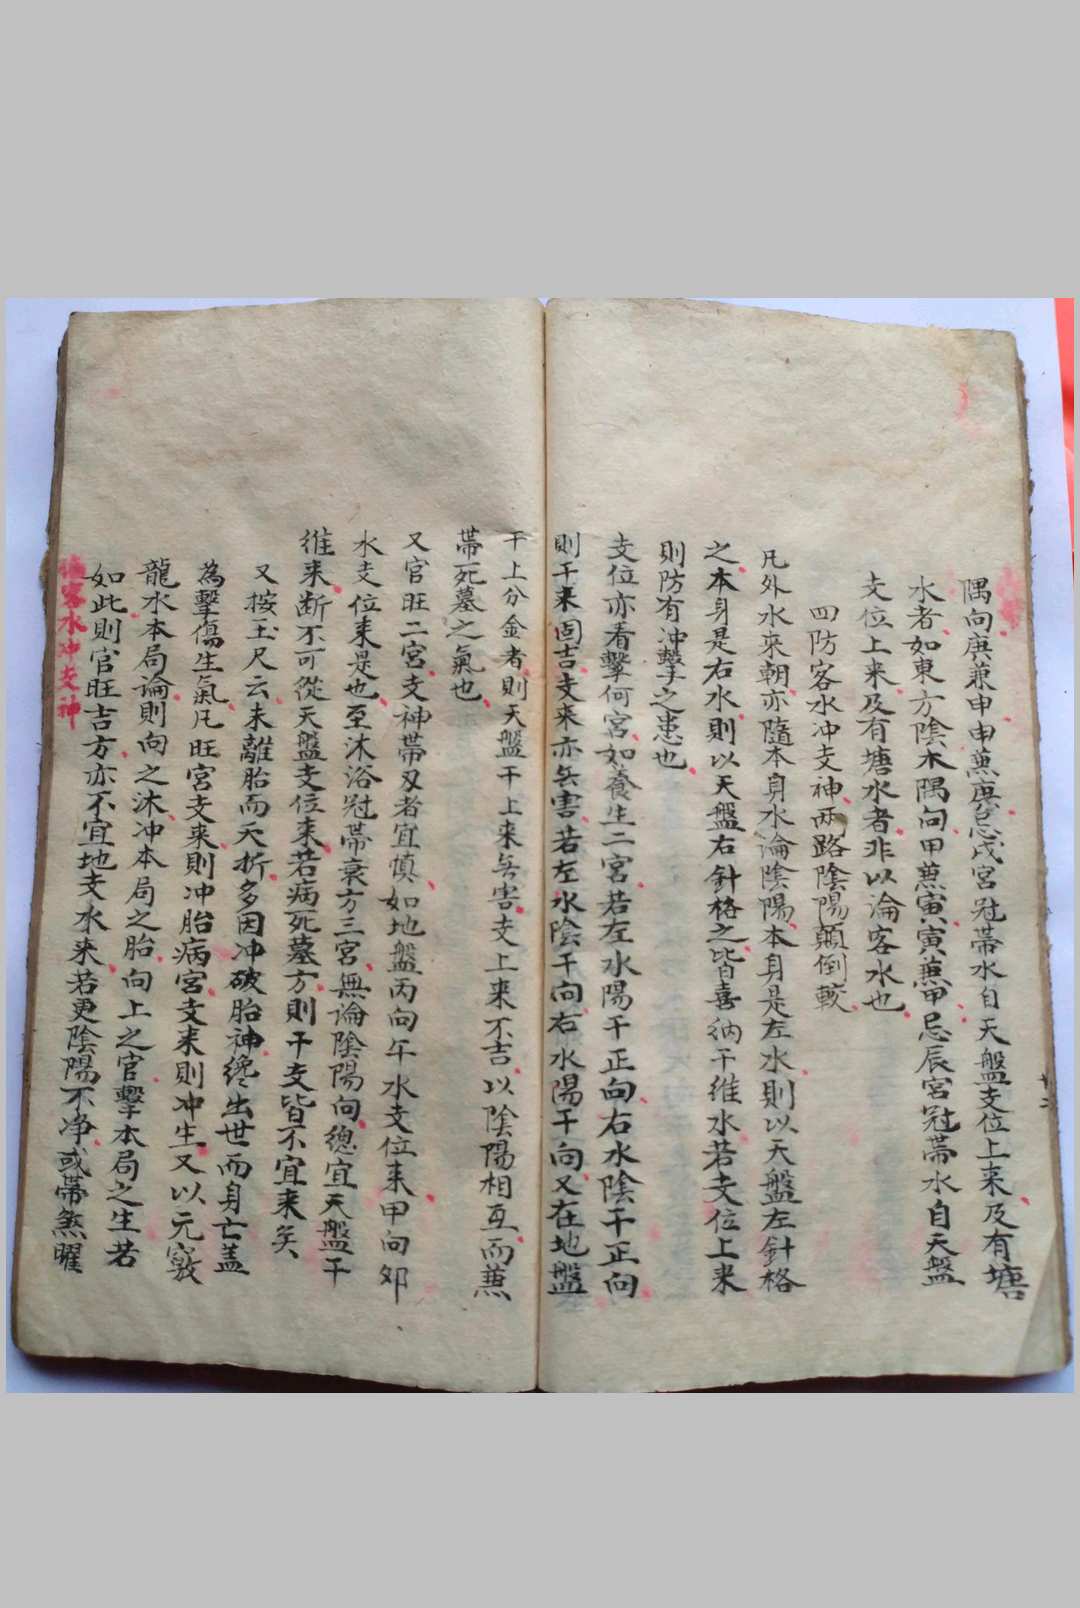 隅向庚兼申申兼庚忌戌宮冠帶水自天盤支位上来及有塘
水者如東方陰木隅向甲兼寅寅兼甲忌辰宮冠帶水自天盤
支位上来及有塘水者非以論客水也
四防客水冲支神兩路陰陽顛倒輆
凡外水来朝亦隨本身水論陰陽本身是左水則以天盤左針格
之本身是右水則以天盤右針格之皆喜納干維水若支位上来
則防有冲擊之患也
支位亦看擊何宮如養生二宮若左水陽干正向右水陰干正向
則干来固吉支来亦無害若左水陰干向右水陽干向又在地盤
干上分金者則天盤干上来無害支上来不吉以陰陽相互而兼
帶死墓之氣也
又官旺二宮支神帶刃者宜慎如地盤丙向午水支位来甲向卯
水支位来是也至沐浴冠帶衰方三宮無論陰陽向總宜天盤干
維来断不可從天盤支位来若病死墓方則干支皆不宜来矣
又按玉尺云未離胎而夭折多因冲破胎神纔出世而身亡盖
為擊傷生氣凡旺宮支来則冲胎病宮支来則冲生又以元竅
龍水本局論則向之沐冲本局之胎向上之官擊本局之生若
如此則官旺吉方亦不宜地支水来若更陰陽不净或帶煞曜
客水冲支神